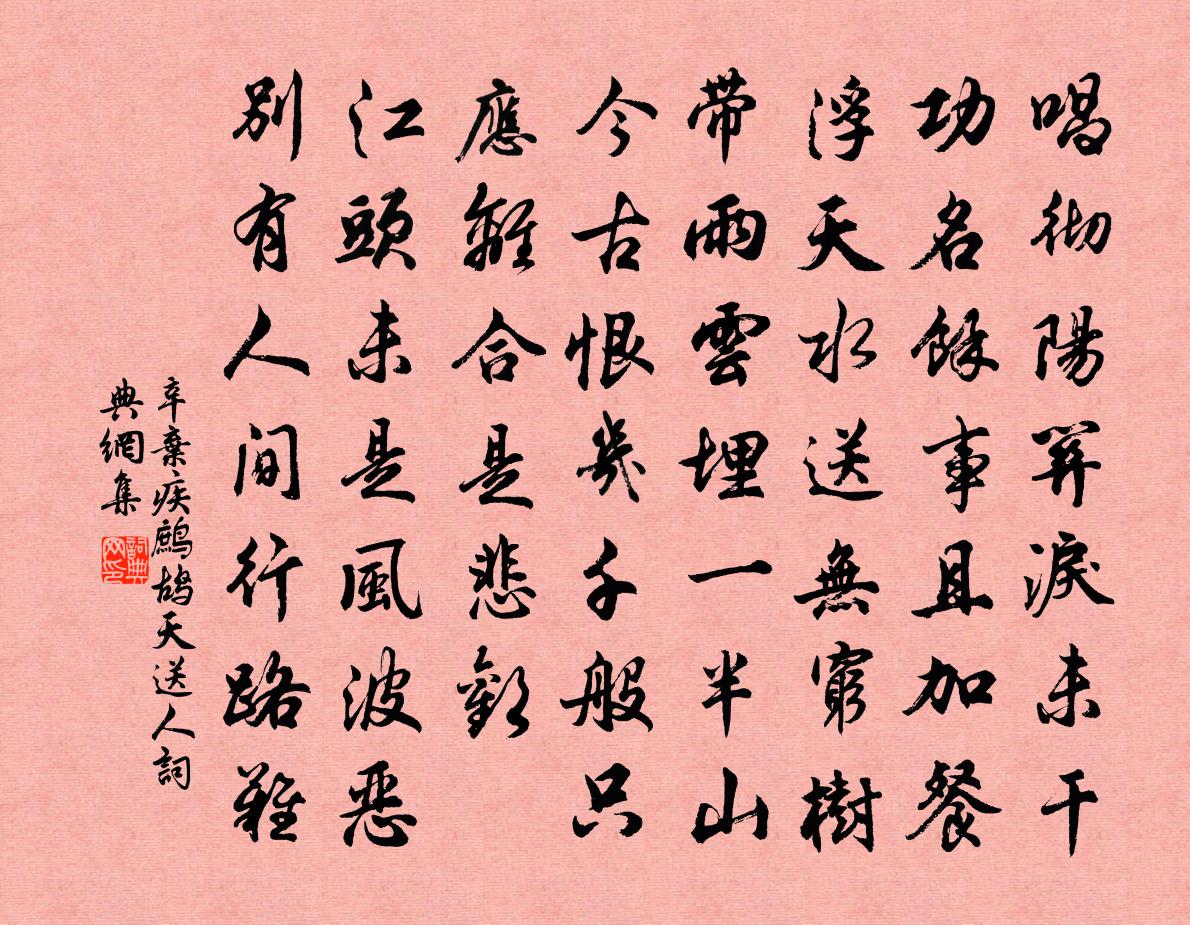 唱彻陽関淚未干
功名餘事且加餐
浮天水送無窮樹
帶雨雲埋一半山
今古恨幾千般只
應離合是悲歡
江頭未是風波惡
別有人間行路難
辛棄疾鷓鴣天送人詞
典網集
詞典
网印